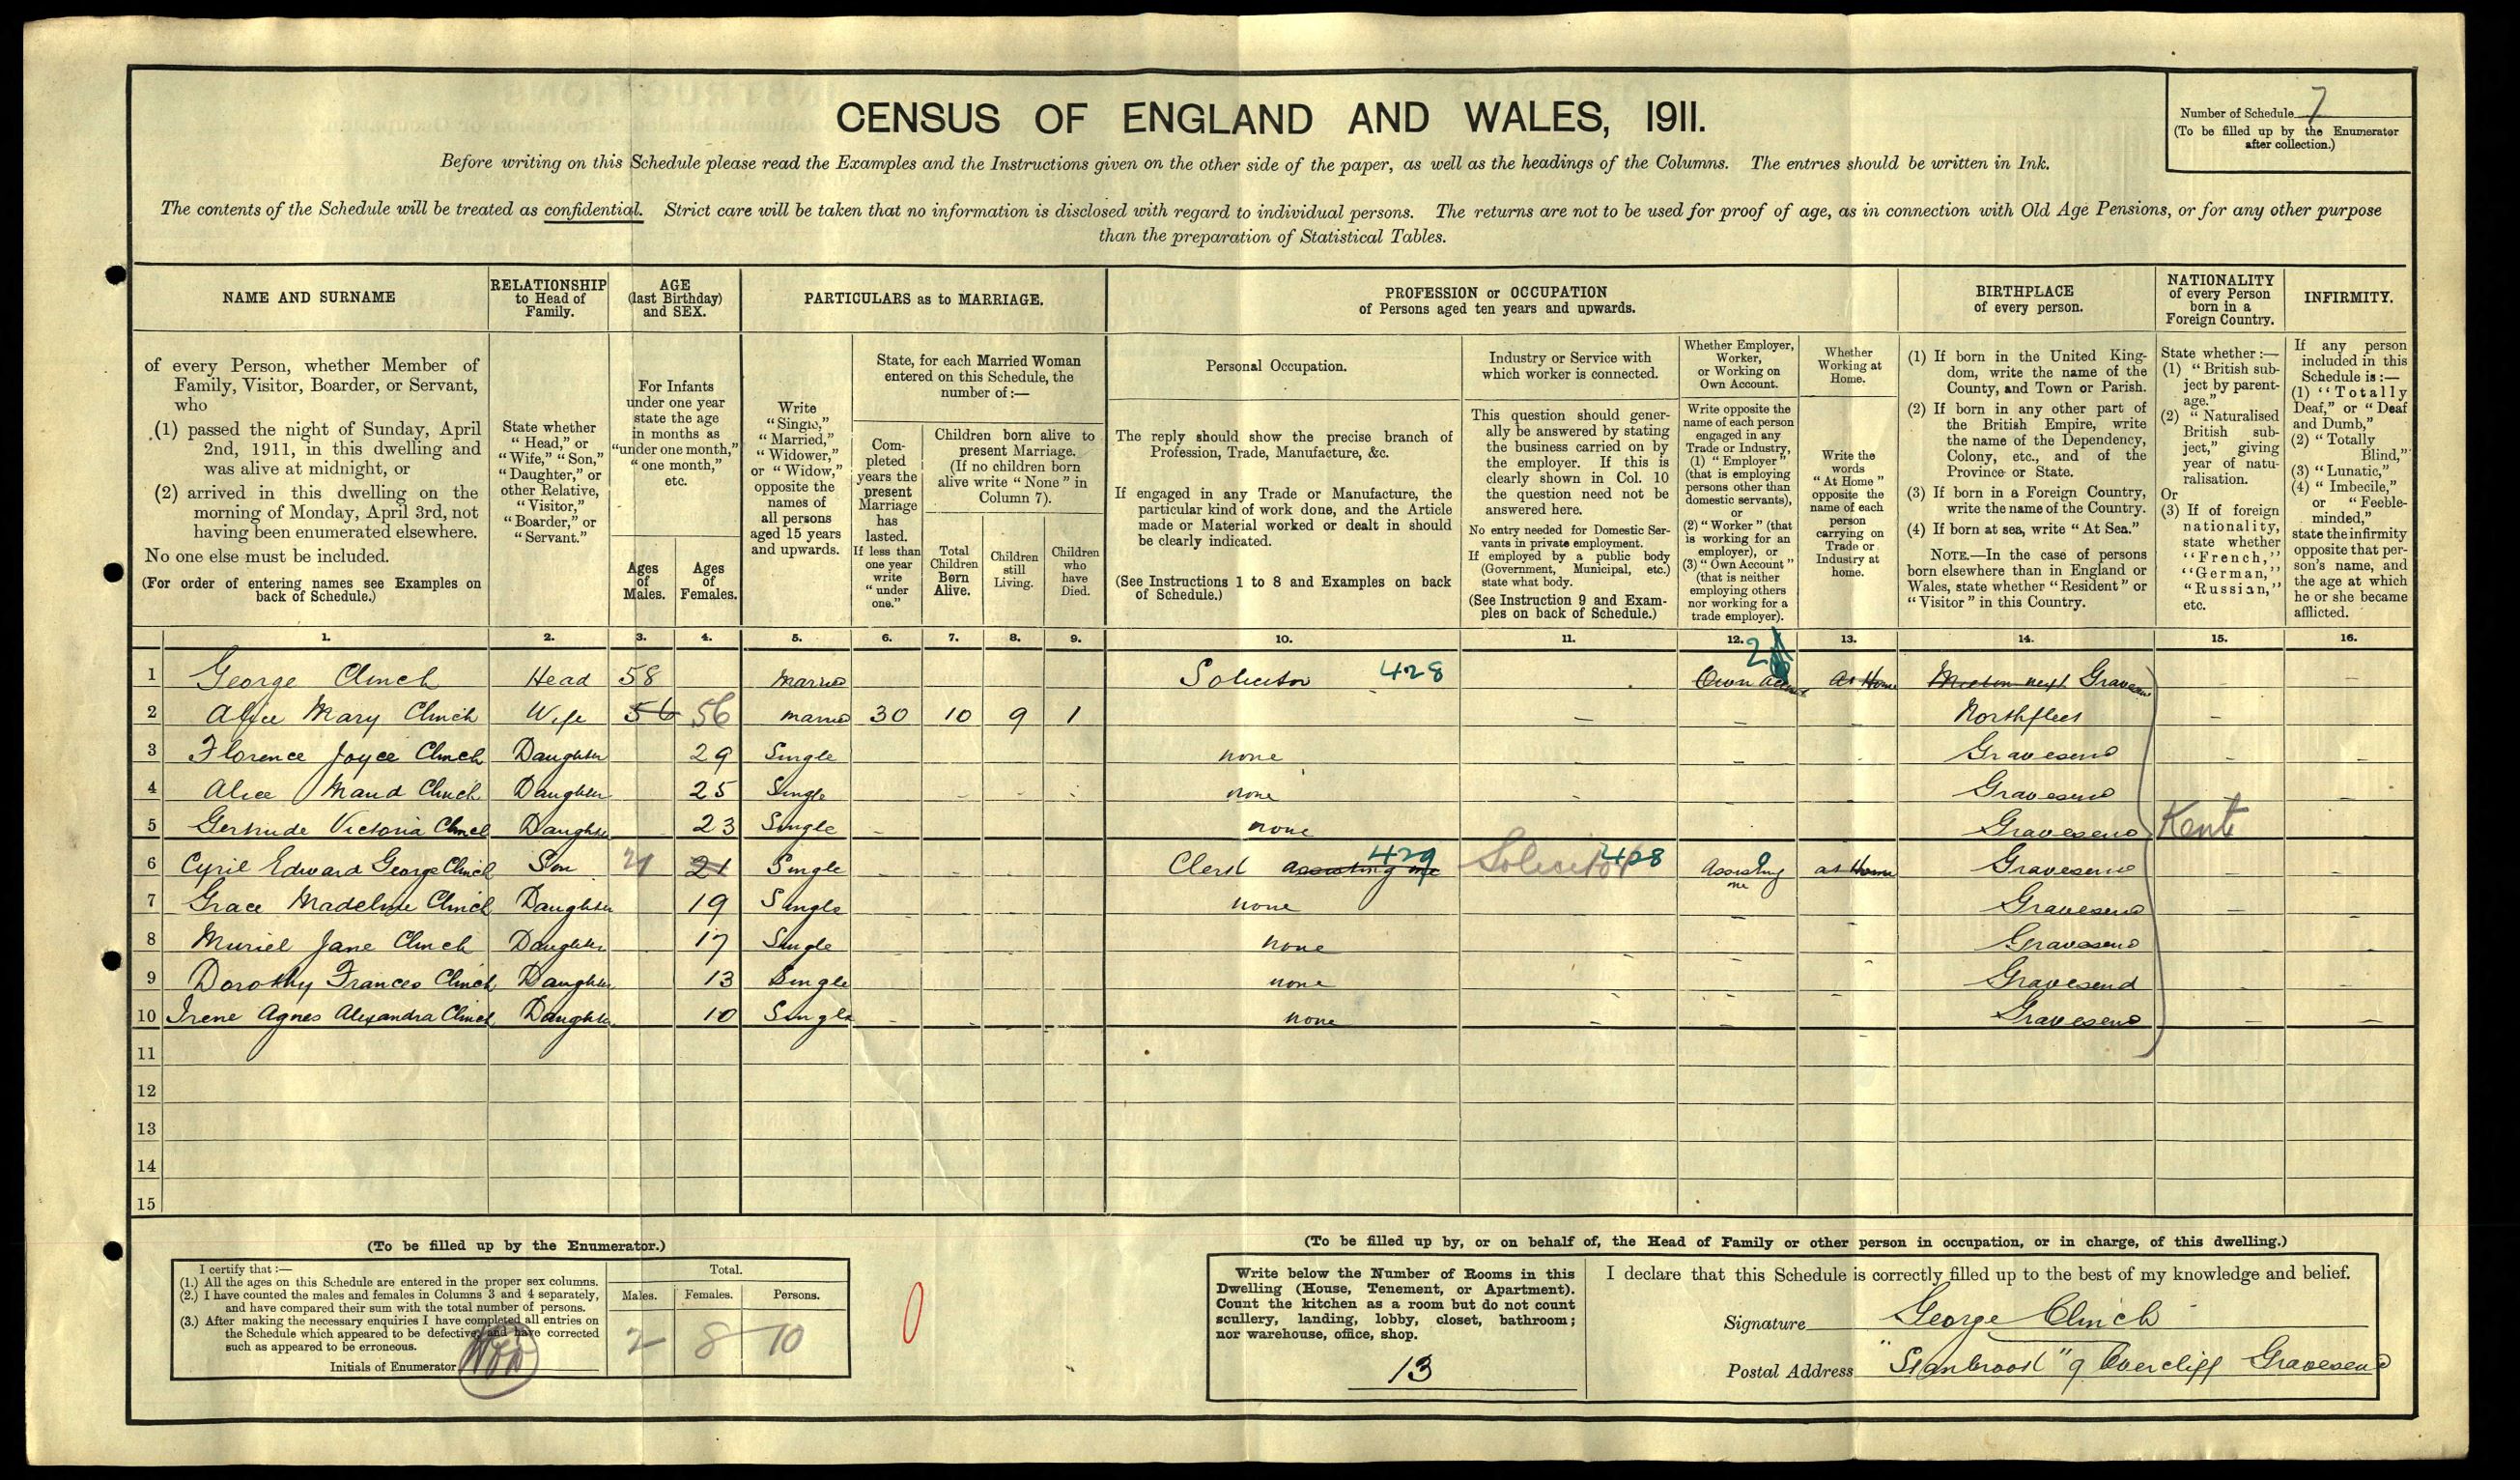 CENSUS OF ENGLAND AND WALES, 1911.
Number of Schedule 7
(To be filled up by the Enumerator
after collection.)
Before writing on this Schedule please read the Examples and the Instructions given on the other side of the paper, as well as the headings of the Columns. The entries should be written in Ink.
The contents of the Schedule will be treated as confidential. Strict care will be taken that no information is disclosed with regard to individual persons. The returns are not to be used for proof of age, as in connection with Old Age Pensions, or for any other purpose
than the preparation of Statistical Tables.
NAME AND SURNAME
RELATIONSHIP
to Head of
Family.
AGE
(last Birthday)
and SEX.
PARTICULARS as to MARRIAGE.
PROFESSION or OCCUPATION
of Persons aged ten years and upwards.
BIRTHPLACE
of every person.
NATIONALITY
of every Person
born in a
Foreign Country.
INFIRMITY.
of every Person, whether Member of
Family, Visitor, Boarder, or Servant,
who
(1) passed the night of Sunday, April
2nd, 1911, in this dwelling and
was alive at midnight, or
(2) arrived in this dwelling on the
morning of Monday, April 3rd, not
having been enumerated elsewhere.
No one else must be included.
(For order of entering names see Examples on
back of Schedule.)
State whether
"Head," or
"Wife," "Son,"
"Daughter," or
other Relative,
"Visitor,"
"Boarder," or
"Servant."
For Infants
under one year
state the age
in months as
"under one month,"
"one month,"
etc.
Ages
of
Males.
Ages
of
Females.
Write
"Single,"
"Married,"
"Widower,"
or "Widow,"
opposite the
names of
all persons
aged 15 years
and upwards.
State, for each Married Woman
entered on this Schedule, the
number of:—
Com-
pleted
years the
present
Marriage
has
lasted.
If less than
one year
write
"under
one."
Children born alive to
present Marriage.
(If no children born
alive write "None" in
Column 7).
Total
Children
Born
Alive.
Children
still
Living.
Children
who
have
Died.
Personal Occupation.
The reply should show the precise branch of
Profession, Trade, Manufacture, &c.
If engaged in any Trade or Manufacture, the
particular kind of work done, and the Article
made or Material worked or dealt in should
be clearly indicated.
(See Instructions 1 to 8 and Examples on back
of Schedule.)
Industry or Service with
which worker is connected.
This question should gener-
ally be answered by stating
the business carried on by
the employer. If this is
clearly shown in Col. 10
the question need not be
answered here.
No entry needed for Domestic Ser-
vants in private employment.
If employed by a public body
(Government, Municipal, etc.)
state what body.
(See Instruction 9 and Exam-
ples on back of Schedule.)
Whether Employer,
Worker,
or Working on
Own Account.
Write opposite the
name of each person
engaged in any
Trade or Industry,
(1) "Employer"
(that is employing
persons other than
domestic servants),
or
(2) "Worker" (that
is working for an
employer), or
(3) "Own Account"
(that is neither
employing others
nor working for a
trade employer).
Whether
Working at
Home.
Write the
words
"At Home"
opposite the
name of each
person
carrying on
Trade or
Industry at
home.
(1) If born in the United King-
dom, write the name of the
County, and Town or Parish.
(2) If born in any other part of
the British Empire, write
the name of the Dependency,
Colony, etc., and of the
Province or State.
(3) If born in a Foreign Country,
write the name of the Country.
(4) If born at sea, write "At Sea."
NOTE.—In the case of persons
born elsewhere than in England or
Wales, state whether "Resident" or
"Visitor" in this Country.
State whether:—
(1) "British sub-
ject by parent-
age."
(2) "Naturalised
British sub-
ject," giving
year of natu-
ralisation.
Or
(3) If of foreign
nationality,
state whether
"French,"
"German,"
"Russian,"
etc.
If any person
included in this
Schedule is:—
(1) "Totally
Deaf," or "Deaf
and Dumb,"
(2) "Totally
Blind,"
(3) "Lunatic,"
(4) "Imbecile,"
or "Feeble-
minded,"
state the infirmity
opposite that per-
son's name, and
the age at which
he or she became
afflicted.
1. 2. 3. 4. 5. 6. 7. 8. 9. 10. 11. 12. 13. 14. 15. 16.
1 George Clinch Head 58 Married Solicitor 428 Own Account At Home next Gravesend
2 Alice Mary Clinch Wife 56 56 Married 30 10 9 1 — — — Northfleet — —
3 Florence Joyce Clinch Daughter 29 Single none Gravesend
4 Alice Maud Clinch Daughter 25 Single none Gravesend
5 Gertrude Victoria Clinch Daughter 23 Single none Gravesend Kent
6 Cyril Edward George Clinch Son 21 21 Single Clerk assisting me 429 Solicitor 428 Assisting me at Home Gravesend
7 Grace Madeline Clinch Daughter 19 Single none Gravesend
8 Muriel Jane Clinch Daughter 17 Single none Gravesend
9 Dorothy Frances Clinch Daughter 13 Single none Gravesend
10 Irene Agnes Alexandra Clinch Daughter 10 Single none Gravesend
11
12
13
14
15
(To be filled up by the Enumerator.)
I certify that:—
(1.) All the ages on this Schedule are entered in the proper sex columns.
(2.) I have counted the males and females in Columns 3 and 4 separately,
and have compared their sum with the total number of persons.
(3.) After making the necessary enquiries I have completed all entries on
the Schedule which appeared to be defective, and have corrected
such as appeared to be erroneous.
Initials of Enumerator
Total.
Males. Females. Persons.
2 8 10
0
(To be filled up by, or on behalf of, the Head of Family or other person in occupation, or in charge, of this dwelling.)
Write below the Number of Rooms in this
Dwelling (House, Tenement, or Apartment).
Count the kitchen as a room but do not count
scullery, landing, lobby, closet, bathroom;
nor warehouse, office, shop.
13
I declare that this Schedule is correctly filled up to the best of my knowledge and belief.
Signature George Clinch
Postal Address "Stanbrook" 9 Overcliff Gravesend